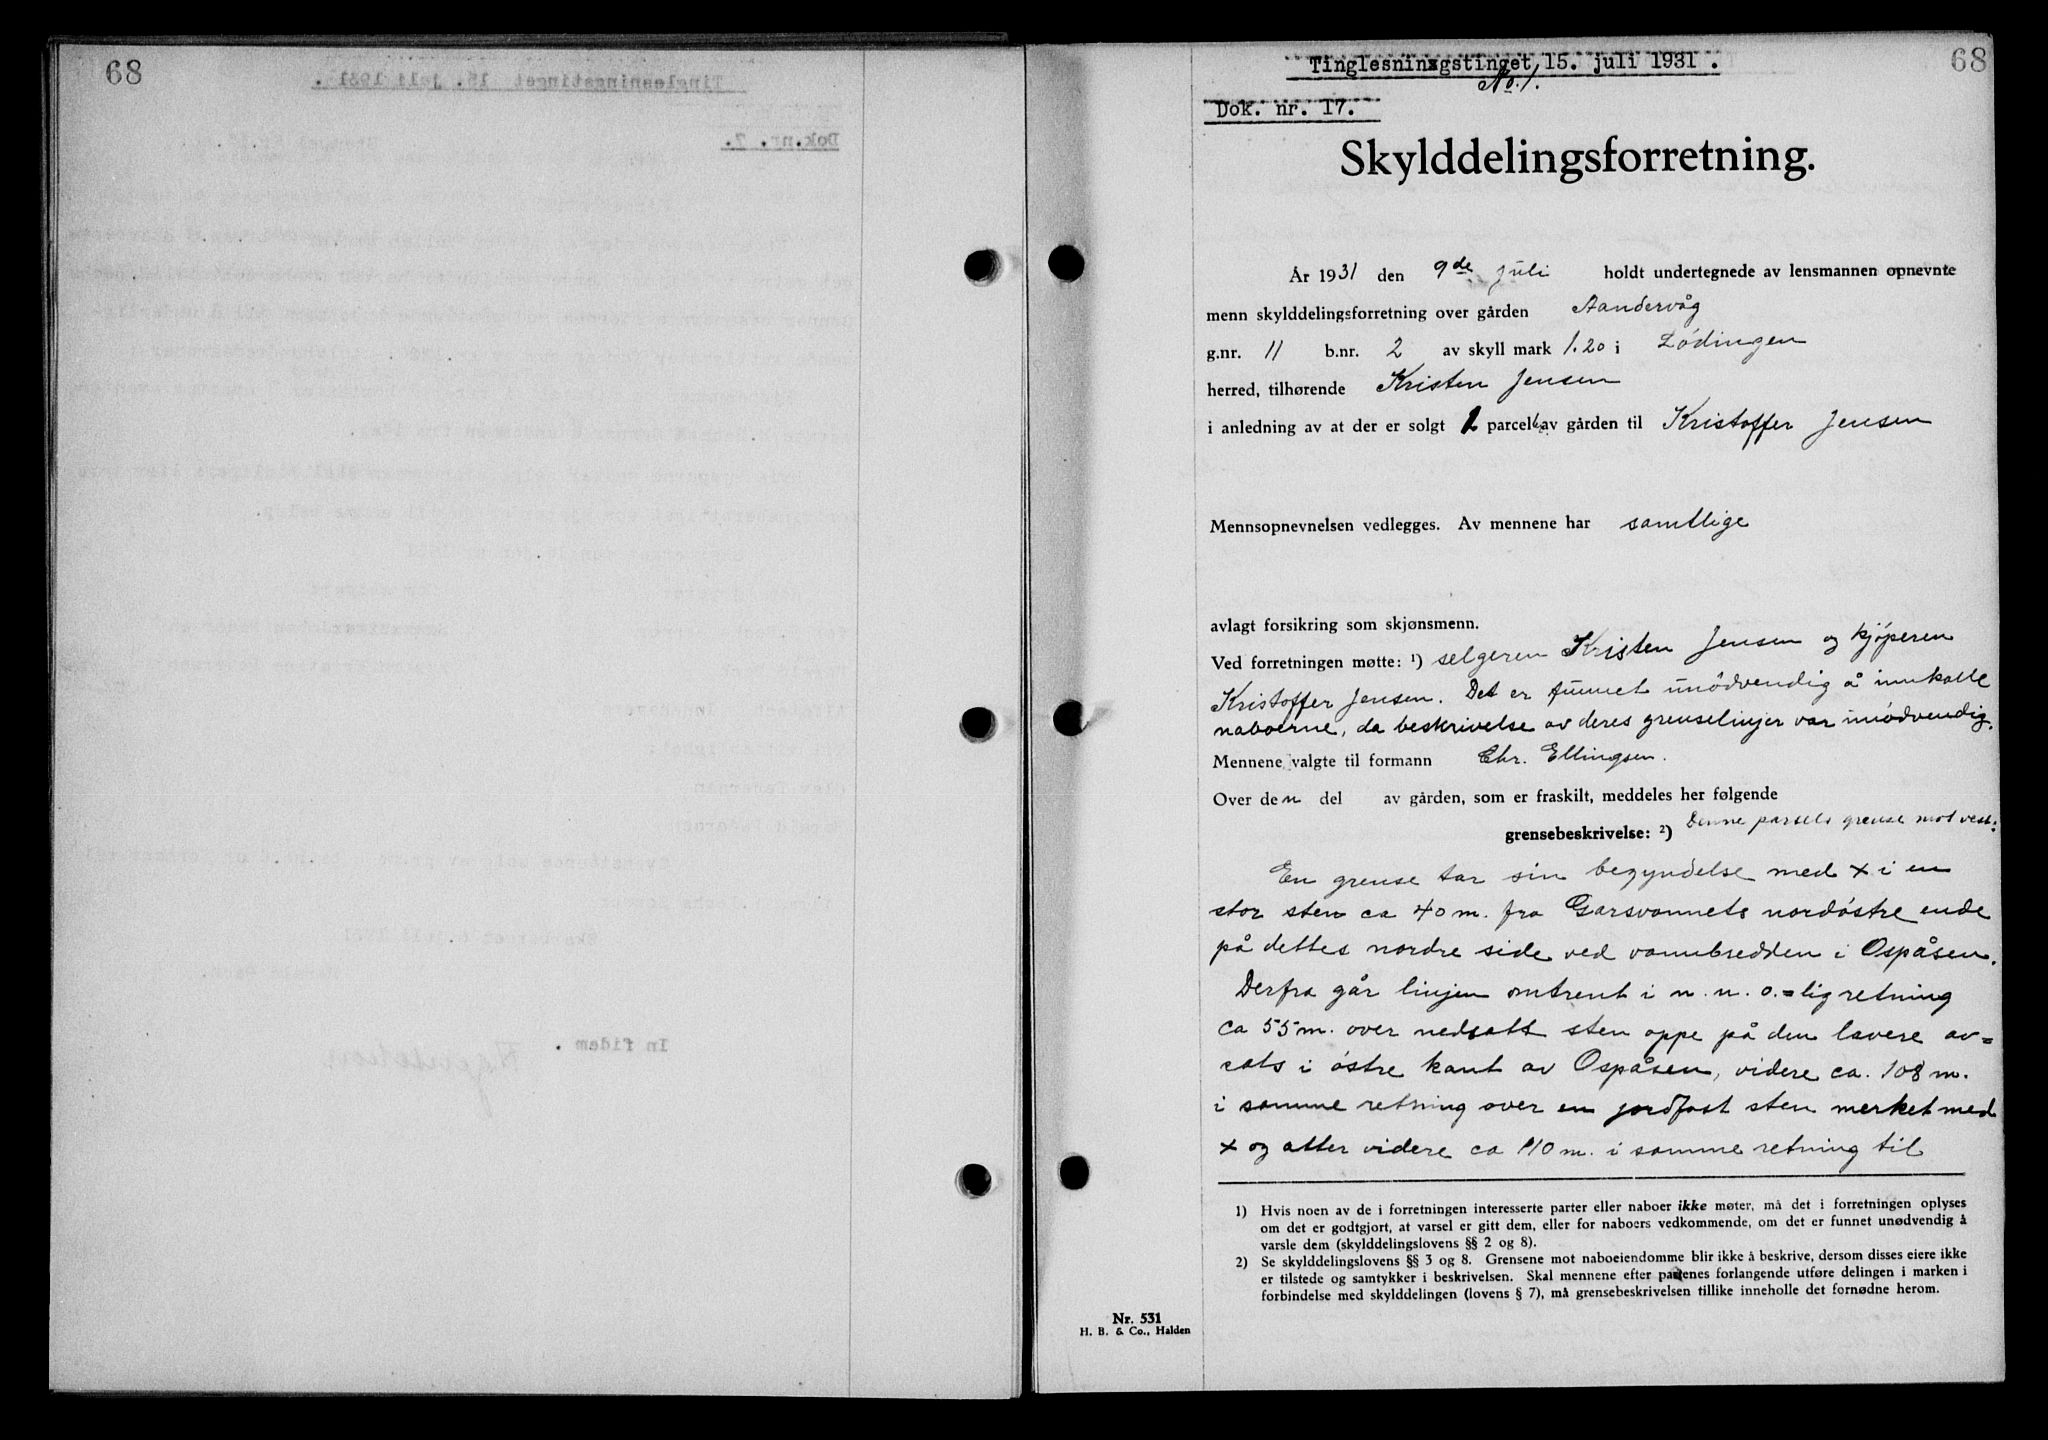 68
In fidem .
68
Tinglesningstinget 15. juli 1931.
No. 1.
Dok. nr. 17.
Skylddelingsforretning.
År 1931 den 9de juli holdt undertegnede av lensmannen opnevnte
menn skylddelingsforretning over gården Aandervåg
g.nr. 11 b.nr. 2 av skyll mark 1.20 i Lødingen
herred, tilhørende Kristen Jensen
i anledning av at der er solgt 1 parcell av gården til Kristoffer Jensen
Mennsopnevnelsen vedlegges. Av mennene har samtlige
avlagt forsikring som skjønsmenn.
Ved forretningen møtte: 1) selgeren Kristen Jensen og kjøperen
Kristoffer Jensen. Det er funnet unødvendig å innkalle
naboerne, da beskrivelse av deres grenselinjer var unødvendig.
Mennene valgte til formann Chr. Ellingsen.
Over den del av gården, som er fraskilt, meddeles her følgende
grensebeskrivelse: 2) Denne parsels grense mot vest:
En grense tar sin begyndelse med x i en
stor sten ca 40 m. fra Garsvannets nordøstre ende
på dettes nordre side ved vannbredden i Ospåsen.
Derfra går linjen omtrent i n. n. o.=lig retning
ca 55 m. over nedsatt sten oppe på den lavere av=
sats i østre kant av Ospåsen, videre ca. 108 m.
i samme retning over en jordfast sten merket med
x og atter videre ca 110 m. i samme retning til
1) Hvis noen av de i forretningen interesserte parter eller naboer ikke møter, må det i forretningen oplyses
om det er godtgjort, at varsel er gitt dem, eller for naboers vedkommende, om det er funnet unødvendig å
varsle dem (skylddelingslovens §§ 2 og 8).
2) Se skylddelingslovens §§ 3 og 8. Grensene mot naboeiendomme blir ikke å beskrive, dersom disses eiere ikke
er tilstede og samtykker i beskrivelsen. Skal mennene efter partenes forlangende utføre delingen i marken i
forbindelse med skylddelingen (lovens § 7), må grensebeskrivelsen tillike inneholle det fornødne herom.
Nr. 531
H. B. & Co., Halden